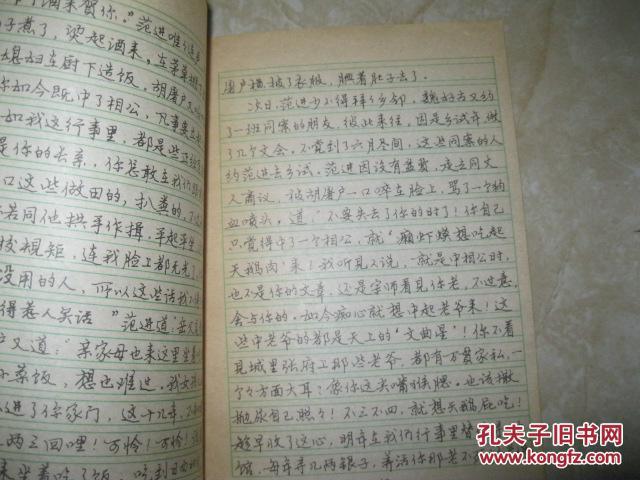 个酒来贺你。”范进唯唯连
子煮了，烫起酒来，在茅草棚
媳妇在厨下造饭，胡屠户又
你如今既中了相公，凡事要立起
如我这行事里，都是些正经
是你的长亲，你怎敢在我们
口这些做田的，扒粪的，
若同他拱手作揖，平起平坐
校规矩，连我脸上都无光了
没用的人，所以这些话我不
得惹人笑话”范进道“岳父
户又道：“亲家母也来这里坐着
子菜饭，想也难过。我女孩
进了你家门，这十几年，不
两三回哩！可怜！可怜！
来坐着吃了饭，吃到日西
屠户横披了衣服，腆着肚子去了。
次日，范进少不得拜个乡邻，魏好古又约
了一班同案的朋友，彼此来往，因是乡试年做
了几个文会，不觉到了六月尽间，这些同案的人
约范进去乡试，范进因没有盘费，走去同丈
人商议，被胡屠户一口啐在脸上，骂了一个狗
血喷头，道“不要失去了你的时了！你自己
只觉得中了一个相公，就“癞虾蟆想吃起
天鹅肉”来！我听见人说，就是中相公时，
也不是你的文章，还是宗师看见你老，不过意，
舍与你的，如今痴心就想中起老爷来！这
些中老爷的都是天上的“文曲星”！你不看
见城里张府上那些老爷，都有万贯家私，一
个个方面大耳？像你这尖嘴猴腮，也该撒
抛尿自己照照！不三不四，就想天鹅屁吃！
趁早收了这心，明年在我们行事里替
馆，每年寻几两银子，养活你那老不
孔夫子旧书网